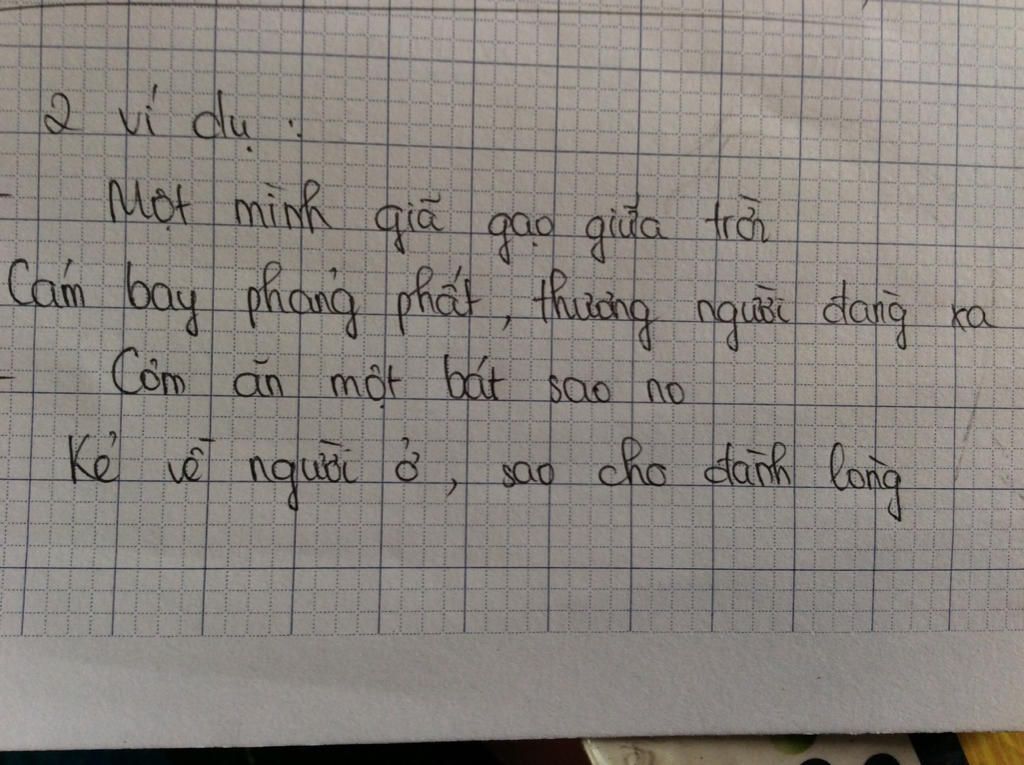 2 ví dụ :
- Một mình giã gạo giữa trời
Cám bay phảng phất, thương người đàng xa
- Cơm ăn một bát sao no
Kẻ về người ở, sao cho đành lòng